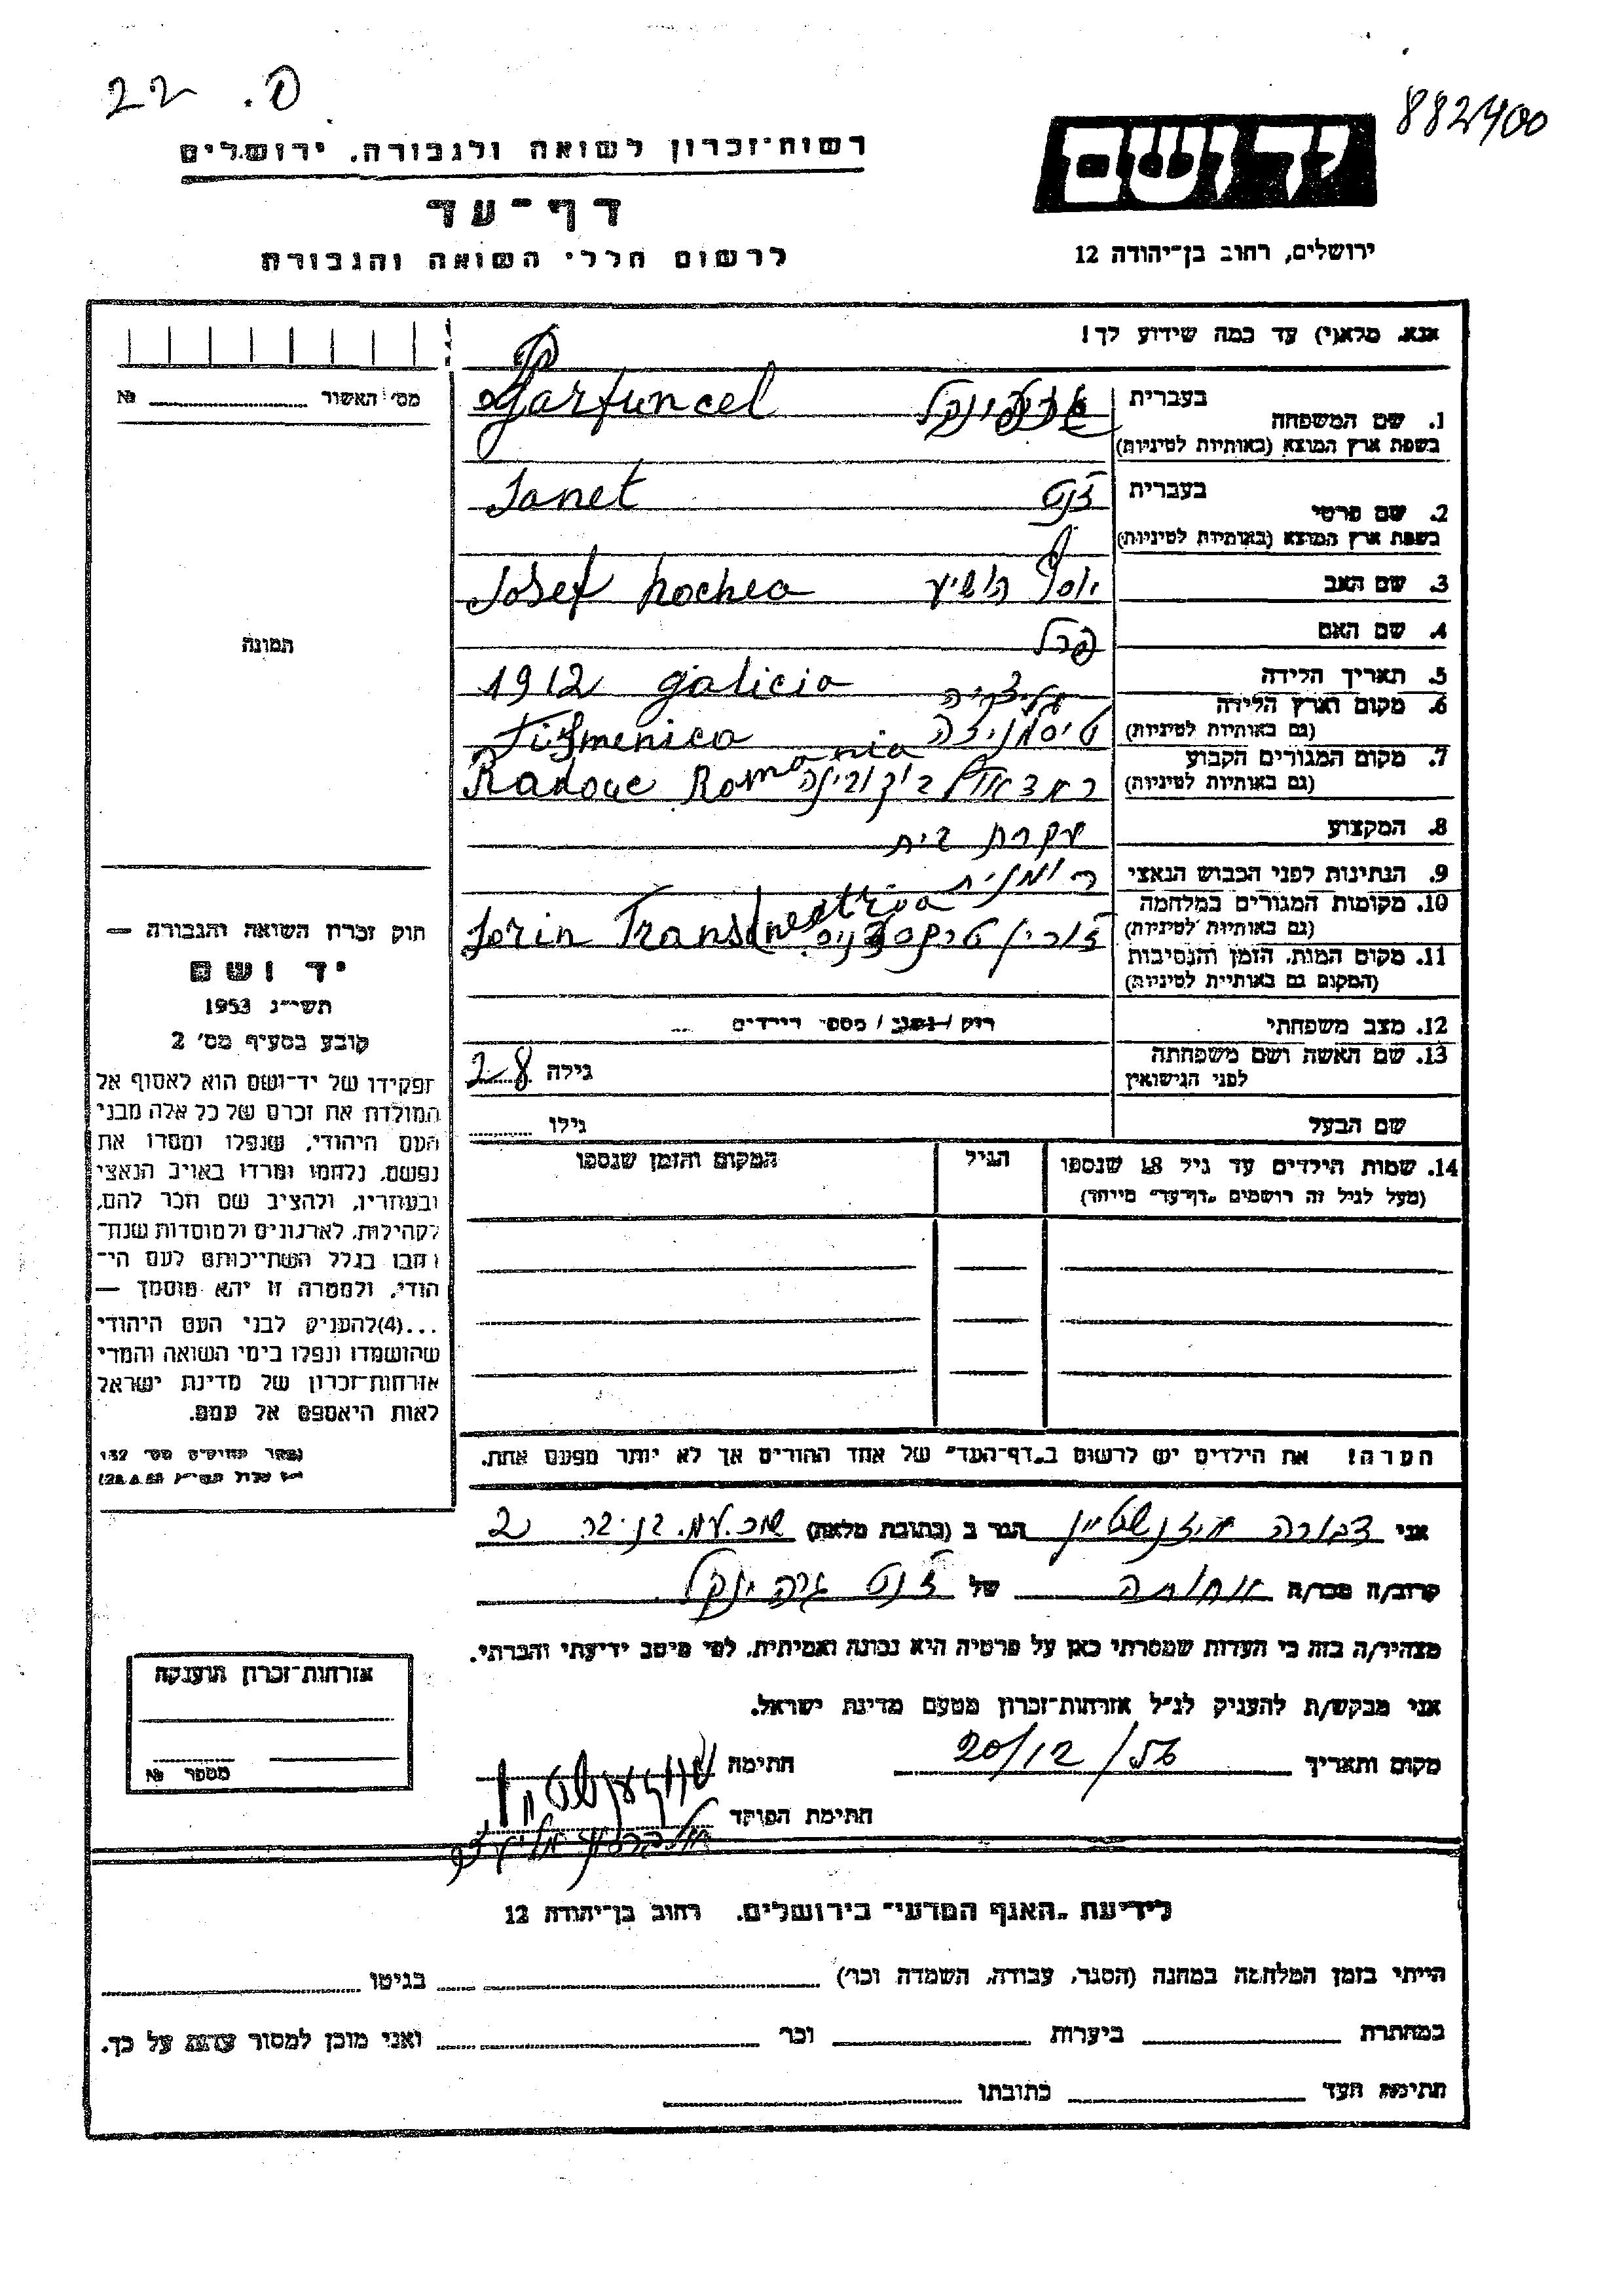 22 .פ
882400
רשות־זכרון לשואה ולגבורה, ירושלים
יד ושם
דף־עד
לרשום חללי השואה והגבורה
ירושלים, רחוב בן־יהודה 12
אנא, מלא(י) עד כמה שידוע לך!
מס׳ האשור № ........
1. שם המשפחה
בעברית
Garfuncel
בשפת ארץ המוצא (באותיות לטיניות)
2. שם פרטי
בעברית ז'נט
Janet
בשפת ארץ המוצא (באותיות לטיניות)
3. שם האב יוסף הושיע Josef
4. שם האם פרל
5. תאריך הלידה 1912 galicia גליציה
6. מקום וארץ הלידה
(גם באותיות לטיניות) טיסמניצה
7. מקום המגורים הקבוע
(גם באותיות לטיניות) ראדאוץ בוקובינה Radouc Romania
8. המקצוע עקרת בית
9. הנתינות לפני הכבוש הנאצי רומנית
10. מקומות המגורים במלחמה
(גם באותיות לטיניות) Jorin Transdnestria
11. מקום המות, הזמן והנסיבות
(המקום גם באותיית לטיניות)
12. מצב משפחתי רוק / נשוי / מספר הילדים ...
13. שם האשה ושם משפחתה
לפני הנישואין
גילה 28
שם הבעל גילו ........
14. שמות הילדים עד גיל 18 שנספו
(מעל לגיל זה רושמים „דף־עד״ מיוחד)
הגיל
המקום והזמן שנספו
תמונה
חוק זכרון השואה והגבורה —
יד ושם
תשי״ג 1953
קובע בסעיף מס׳ 2
תפקידו של יד־ושם הוא לאסוף אל
המולדת את זכרם של כל אלה מבני
העם היהודי, שנפלו ומסרו את
נפשם, נלחמו ומרדו באויב הנאצי
ובעוזריו, ולהציב שם וזכר להם,
לקהילות, לארגונים ולמוסדות שנח־
רבו בגלל השתייכותם לעם הי־
הודי, ולמטרה זו יהא מוסמך —
...(4)להעניק לבני העם היהודי
שהושמדו ונפלו בימי השואה והמרי
אזרחות־זכרון של מדינת ישראל
לאות היאספם אל עמם.
הערה! את הילדים יש לרשום ב„דף־העד״ של אחד ההורים אך לא יותר מפעם אחת.
אני דבורה איזנשטיין הגר ב (כתובת מלאה)
קרוב/ה מכר/ה אחותה של ז'נט גרפינקל
מצהיר/ה בזה כי העדות שמסרתי כאן על פרטיה היא נכונה ואמיתית, לפי מיטב ידיעתי והכרתי.
אני מבקש/ת להעניק לנ״ל אזרחות־זכרון מטעם מדינת ישראל.
מקום ותאריך 20/12/56 חתימה
חתימת הפוקד
אזרחות־זכרון הוענקה
מספר №
לידיעת „האגף המדעי״ בירושלים, רחוב בן־יהודה 12
הייתי בזמן המלחמה במחנה (הסגר, עבודה, השמדה וכר׳) ........ בגיטו ........
במחתרת ........ ביערות ........ וכר ........ ואני מוכן למסור עדות על כך.
חתימת העד ........ כתובתו ........